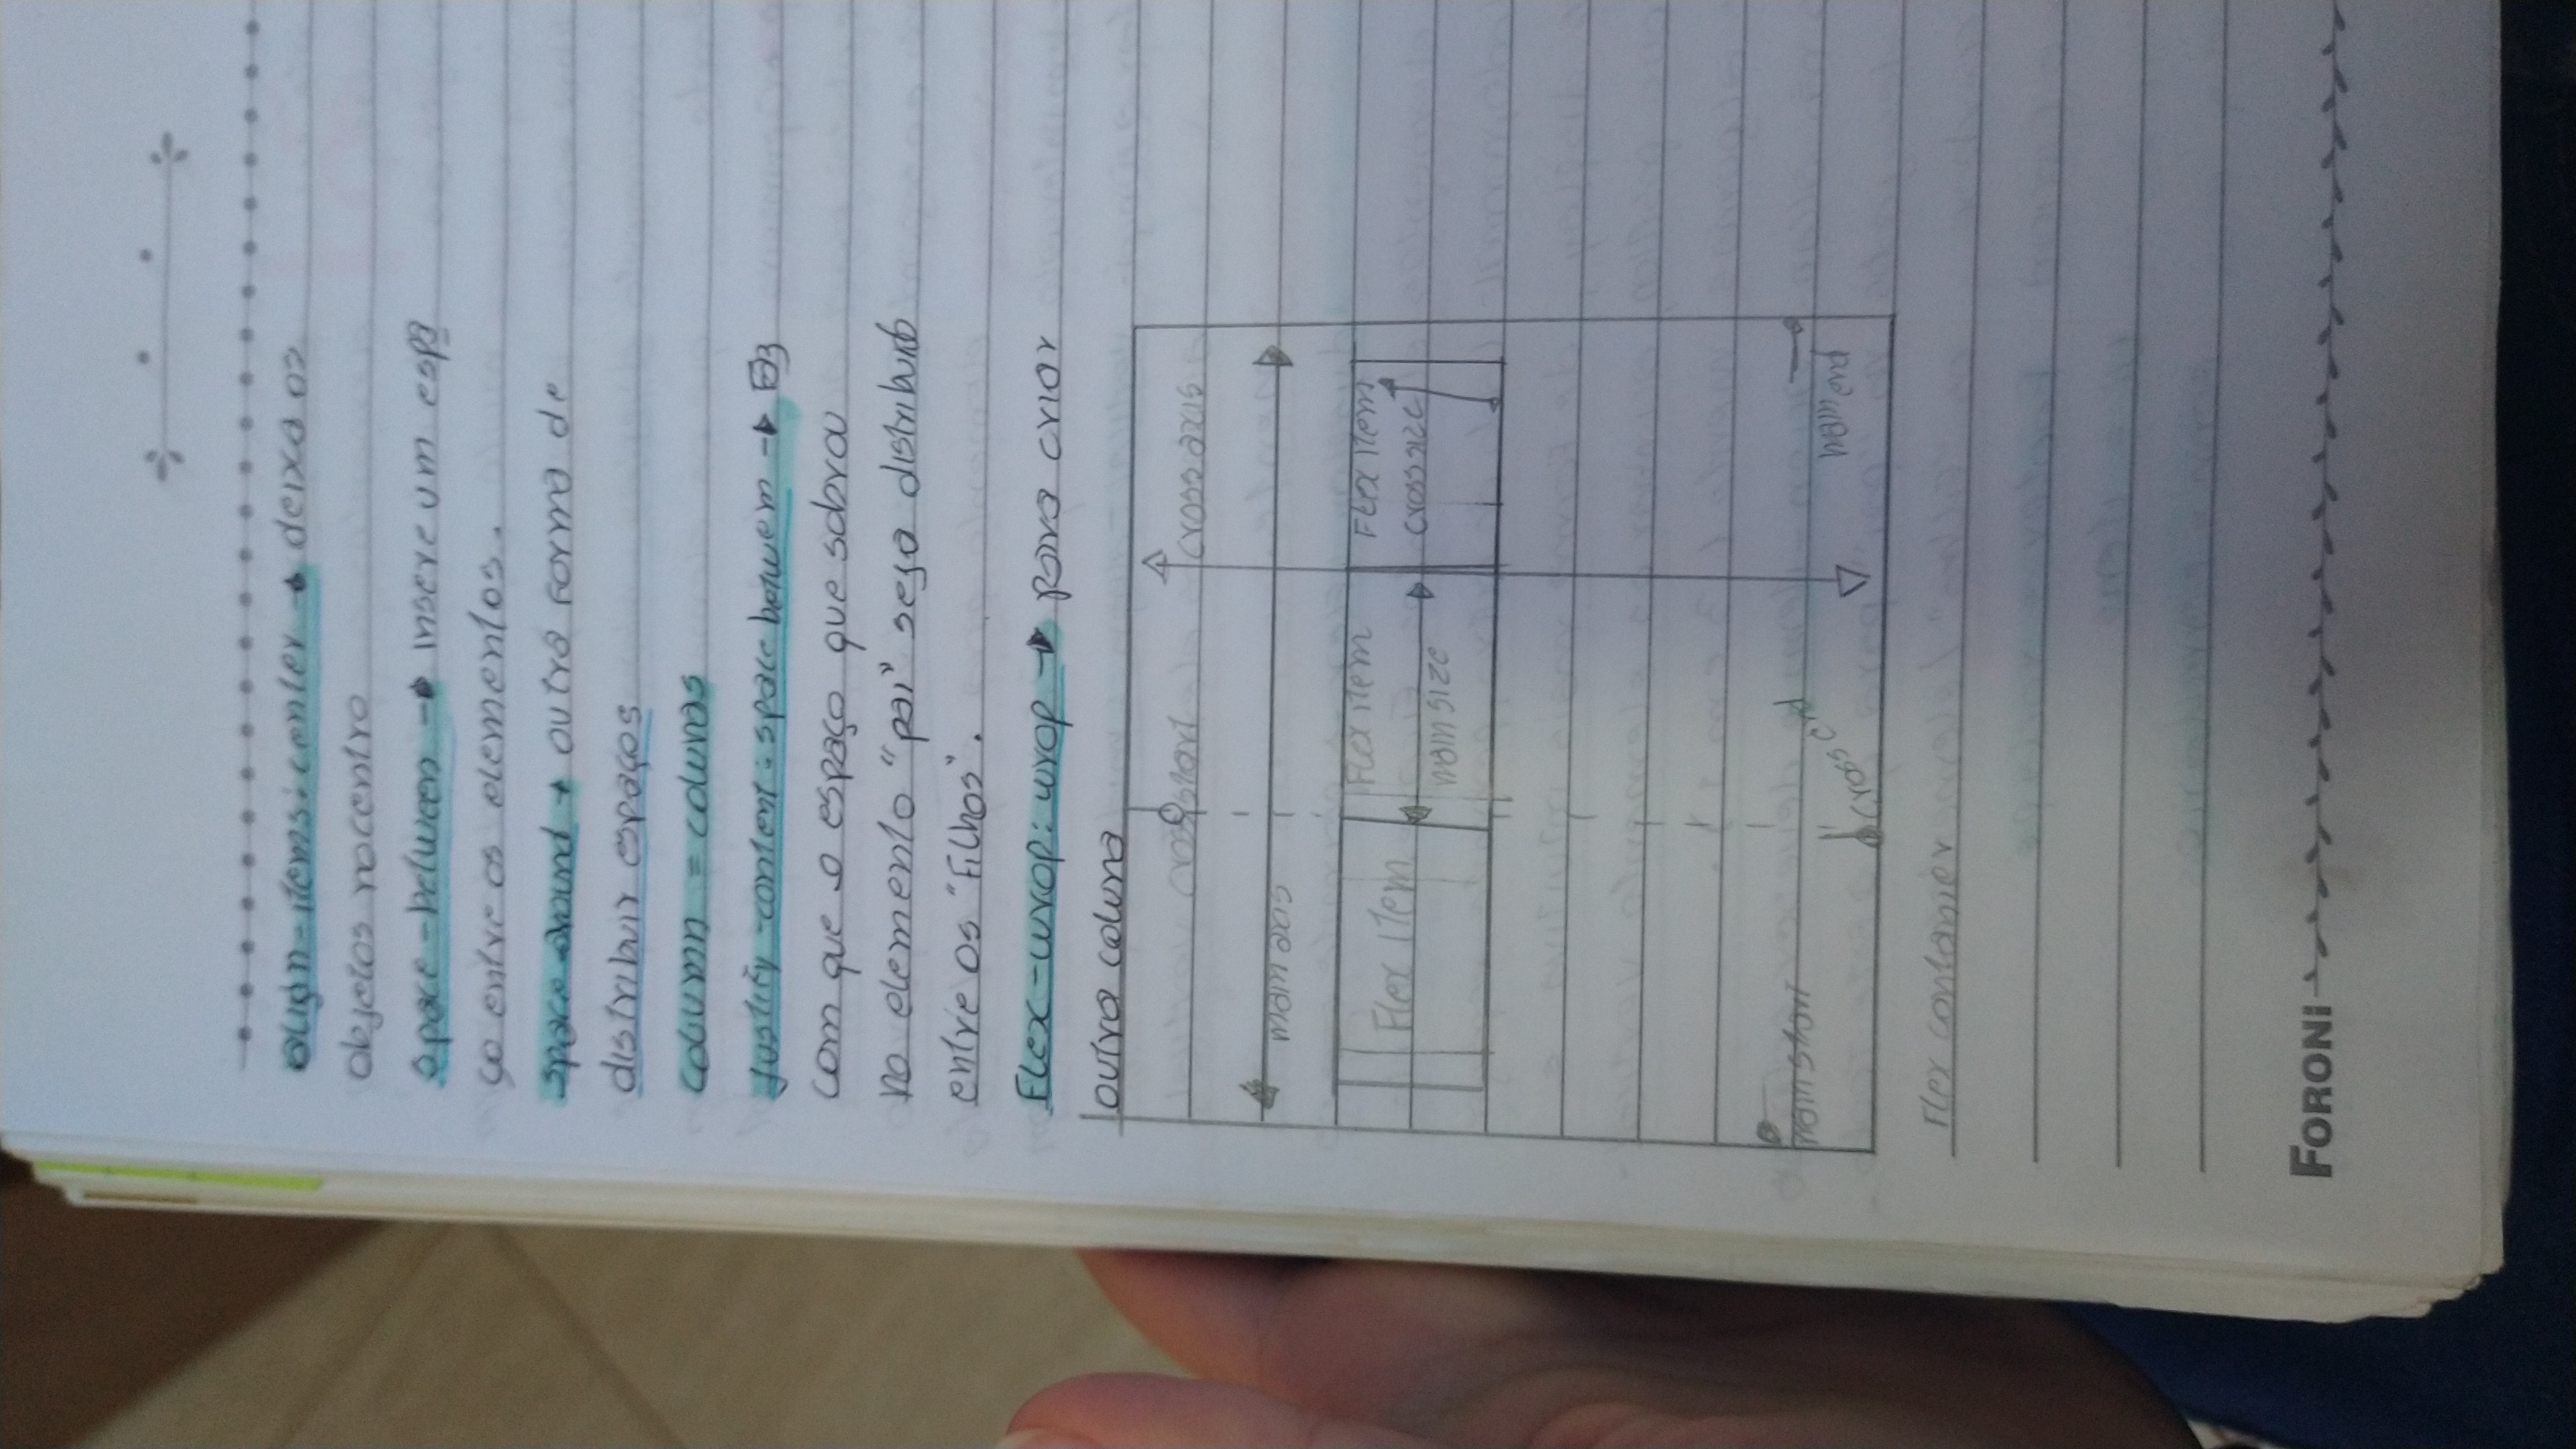 align-items: center → deixa os
objetos no centro
space-between → insere um espa
ço entre os elementos.
space-around → outra forma de
distribuir espaços
column = colunas
justify-content: space betwem → Faz
com que o espaço que sobrou
no elemento "pai" seja distribuido
entre os "Filhos".
Flex-wrap: wrap → para criar
outra coluna
cross start
cross axis
main axis
Flex item
Flex item
Flex item
main size
cross size
main start
cross end
main end
Flex contanier
FORONI